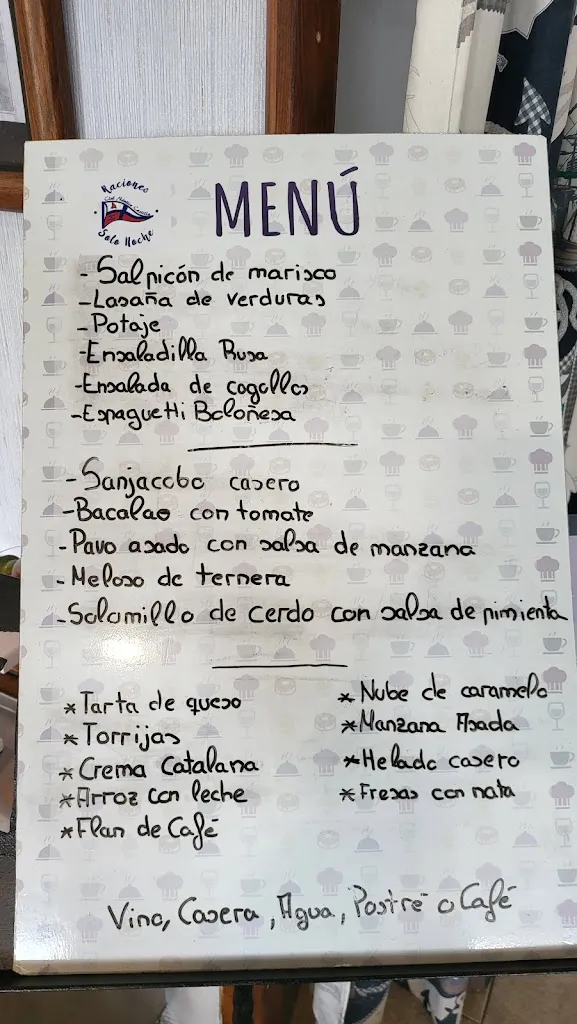 Raciones
Solo Noche
MENÚ
-Salpicón de marisco
-Lasaña de verduras
-Potaje
-Ensaladilla Rusa
-Ensalada de cogollos
-Espaguetti Boloñesa
-Sanjacobo casero
-Bacalao con tomate
-Pavo asado con salsa de manzana
-Meloso de ternera
-Solomillo de cerdo con salsa de pimienta
*Tarta de queso
*Torrijas
*Crema Catalana
*Arroz con leche
*Flan de Café
*Nube de caramelo
*Manzana Asada
*Helado casero
*Fresas con nata
Vino, Casera, Agua, Postre o Café